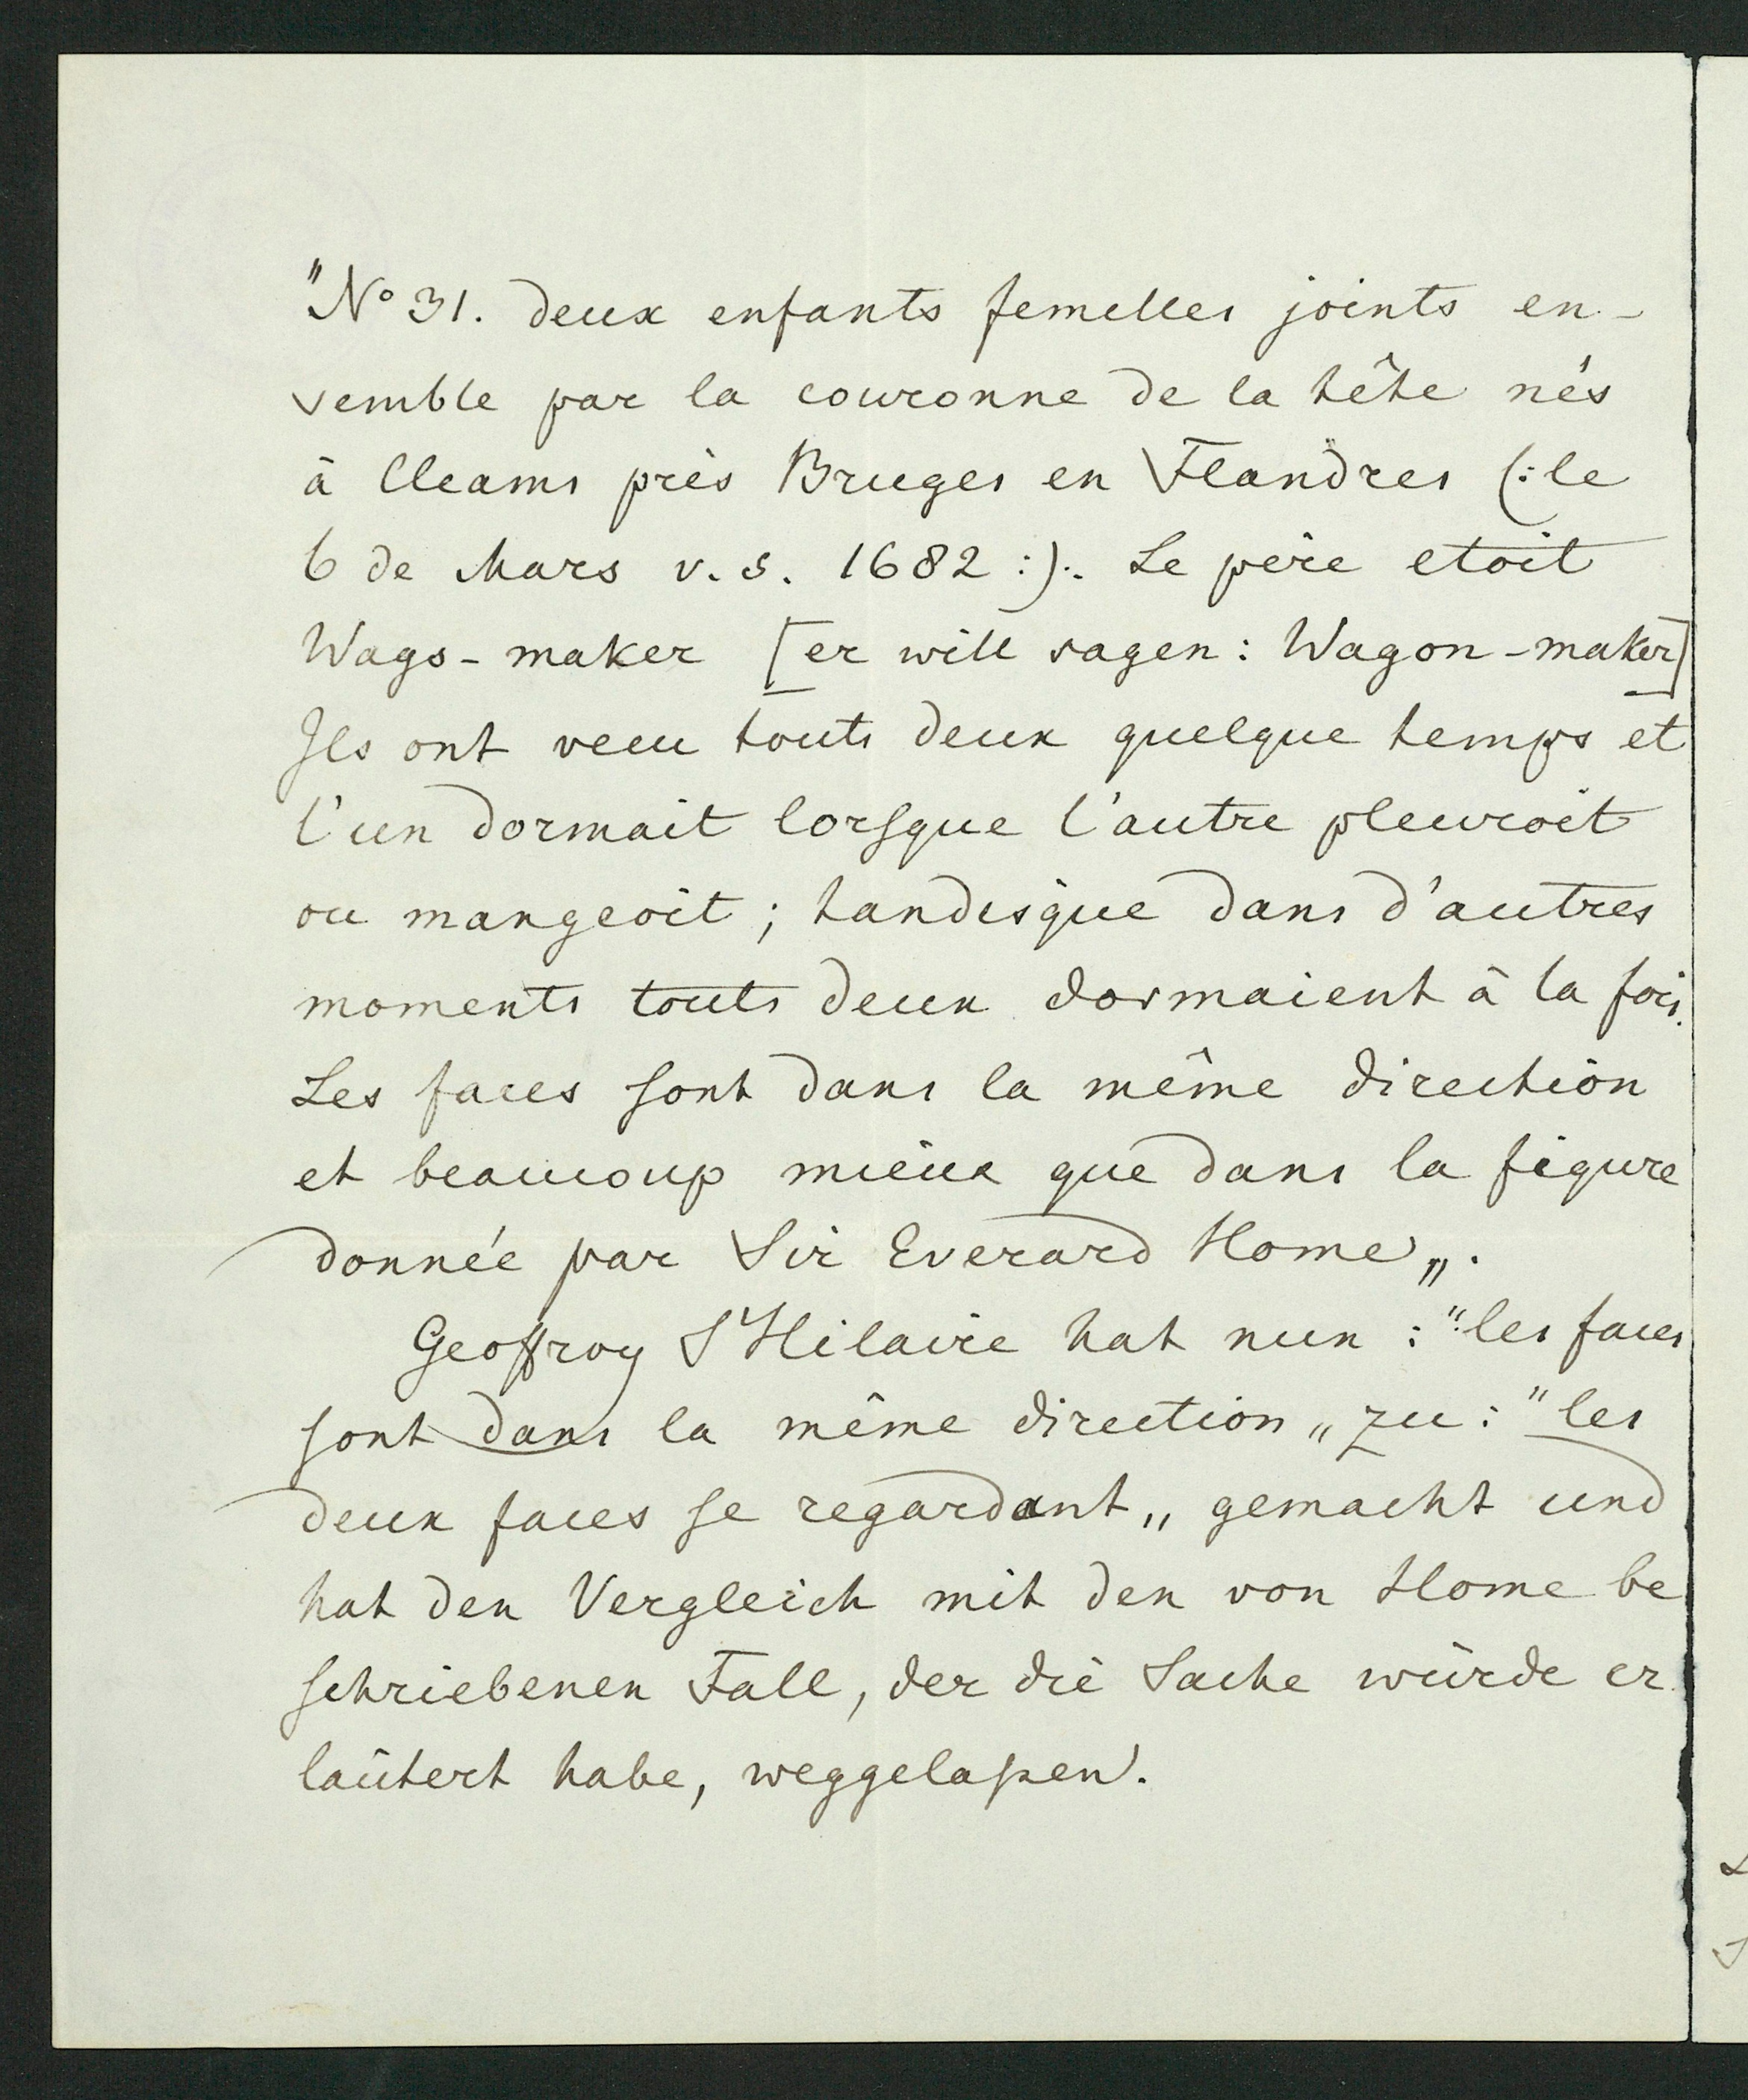 "No 31. deux enfants femelles joints en-
semble par la couronne de la tête nés
à Cleams près Bruges en Flandres (:le
6 de Mars v. s. 1682 :). Le père etoit
Wags-maker [er will sagen: Wagon-maker]
Ils ont vecu touts deux quelque temps et
l'un dormait lorsque l'autre pleuroit
ou mangeoit; tandisque dans d'autres
moments touts deux dormaient à la fois.
Les faces sont dans la même direction
et beaucoup mieux que dans la figure
donnée par Sir Everard Home„.
Geoffroy S'Hilaire hat nun: "les faces
sont dans la même direction„ zu: "les
deux faces se regardant„ gemacht und
hat den Vergleich mit den von Home be
schriebenen Fall, der die Sache würde er
läutert habe, weggelaßen.